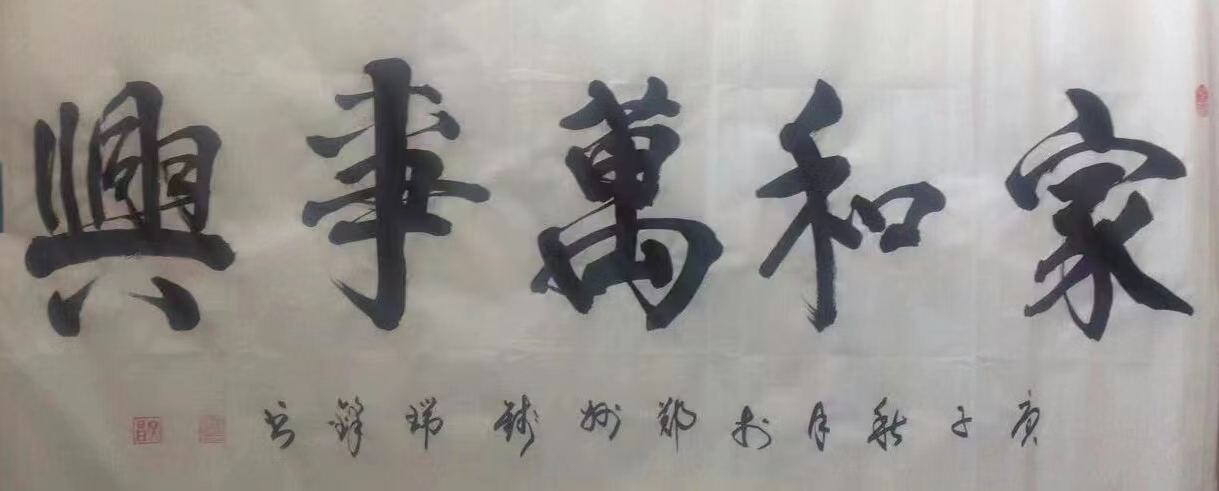 家和萬事興
庚子秋月於鄭州錢瑞鋒书